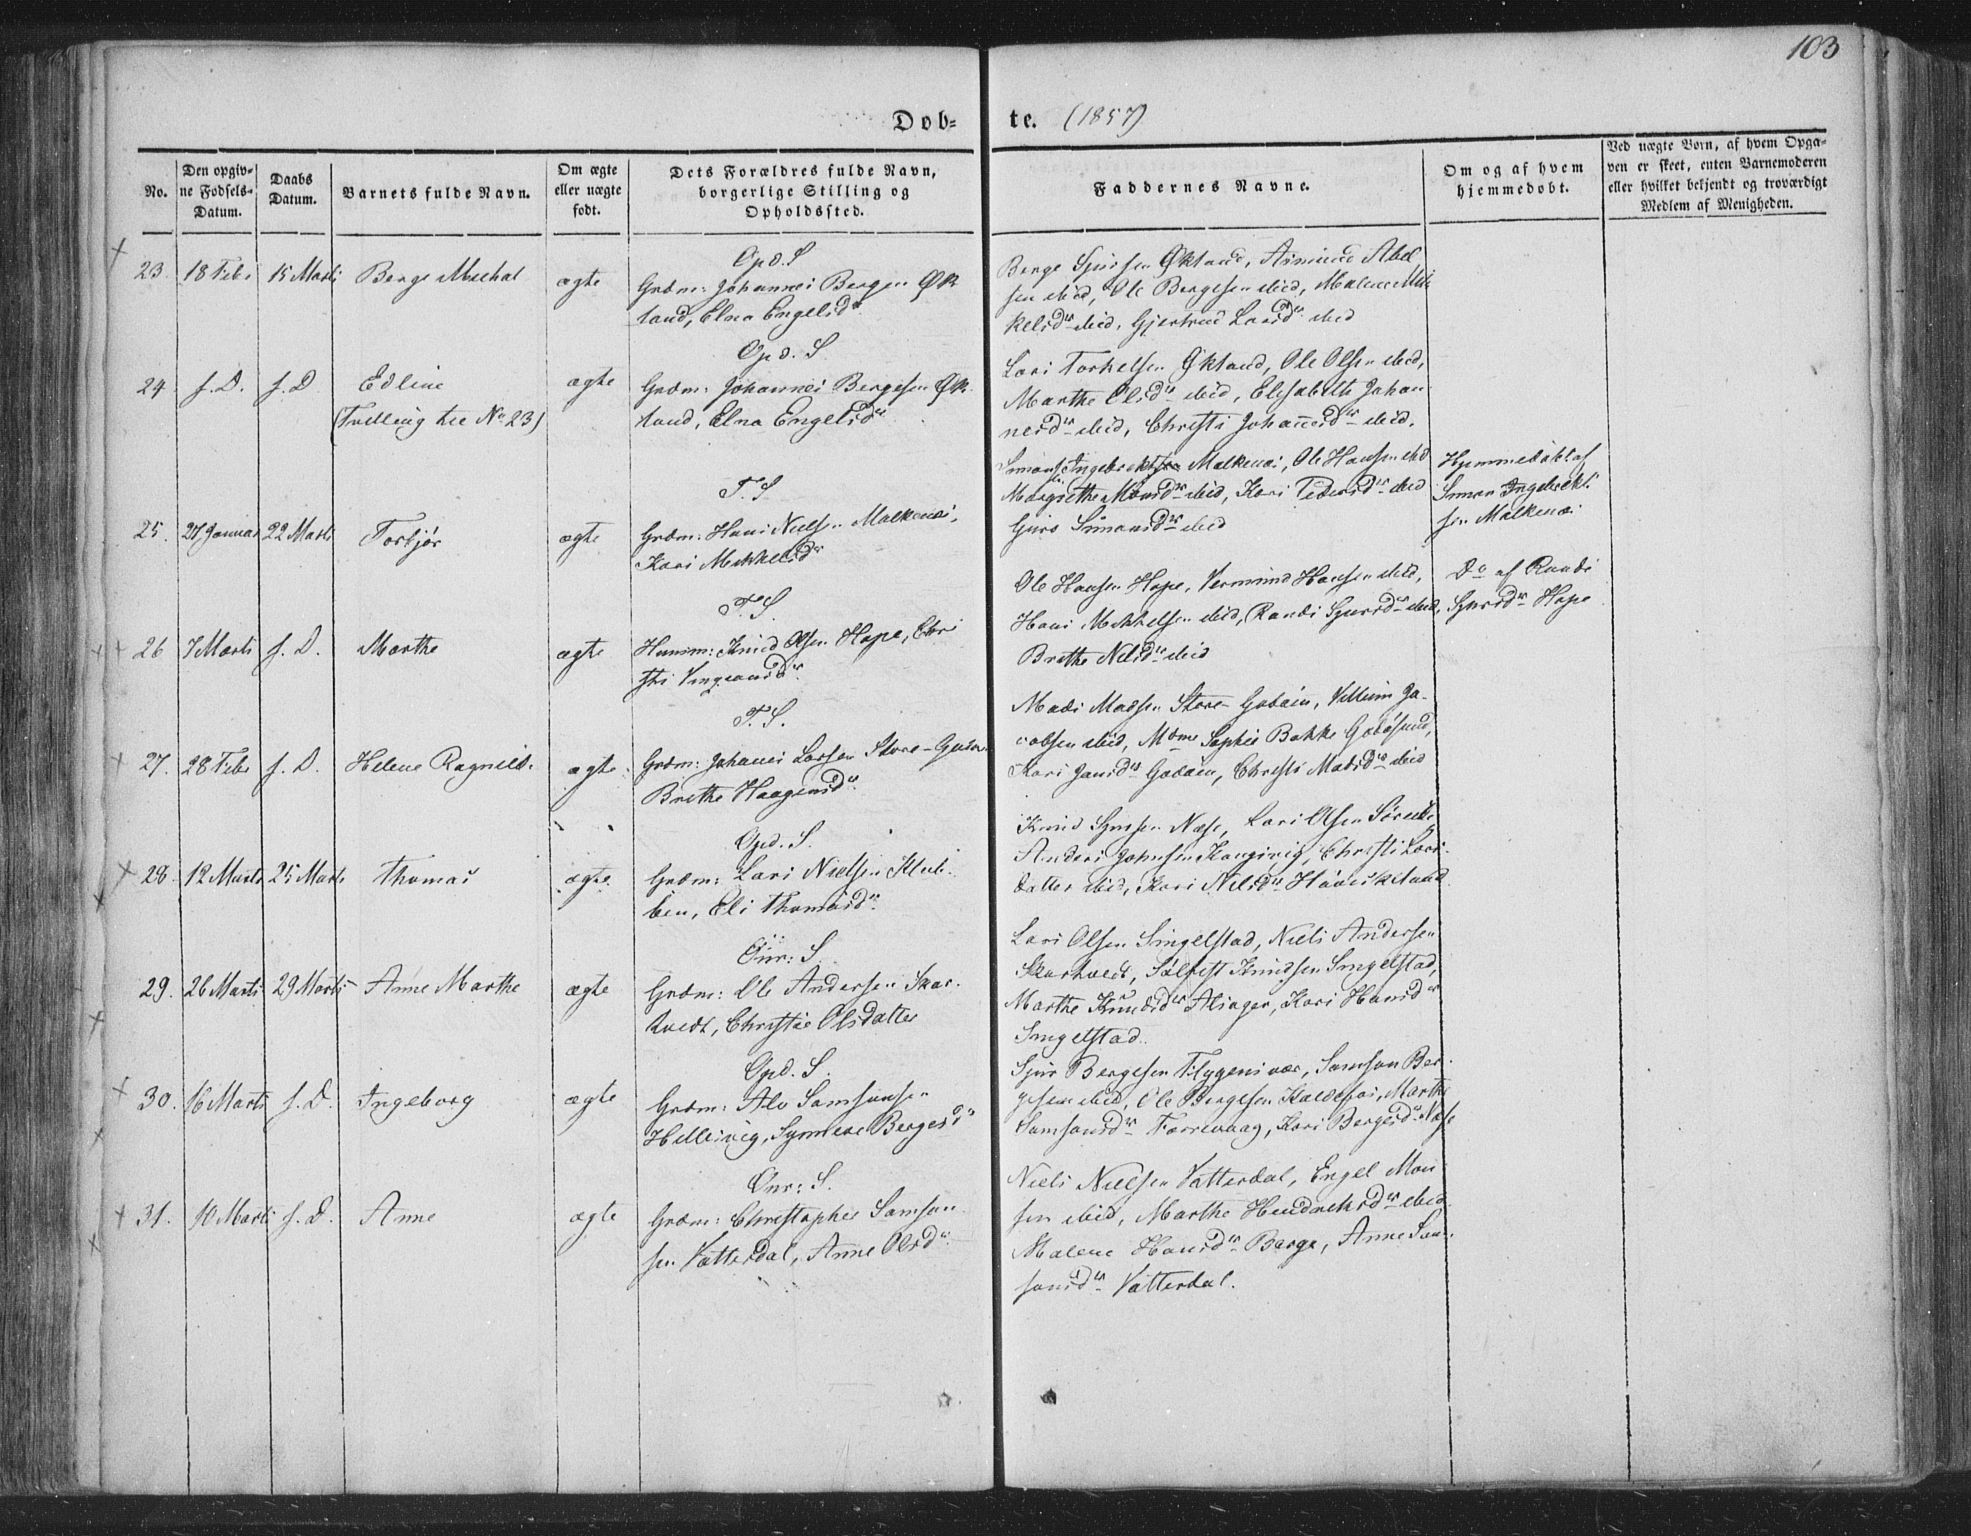 103
Døb-
te. (1857)
No.
Den opgiv-
ne Fødsels-
Datum.
Daabs
Datum.
Barnets fulde Navn.
Om ægte
eller uægte
født.
Dets Forældres fulde Navn,
borgerlige Stilling og
Opholdssted.
Faddernes Navne.
Om og af hvem
hjemmedøbt.
Ved uægte Børn, af hvem Opga-
ven er skeet, enten Barnemoderen
eller hvilket bekjendt og troværdigt
Medlem af Menigheden.
23. 18 Febr 15 Marts Berge Mechal ægte
Opd. S
Grdm: Johannes Bergesen Øk
land, Elna Engelsdr
Berge Sjursen Økland, Asmund Abel
sen ibid, Ole Bergesen ibid, Malene Mik
kelsdr ibid, Gjertrud Larsdr ibid
24. s. D. s. D Edline ægte
(Tvilling til No 23)
Opd. S.
Grdm: Johannes Bergesen Øk
land, Elna Engelsdr
Lars Torkelsen Økland, Ole Olsen ibid,
Marthe Olsdr ibid, Elisabeth Johan
nesdr ibid, Christi Johannesdr ibid.
25. 27 Januar 22 Marts Torbjør ægte
T. S
Grdm: Hans Nielsen Malkenæs,
Kari Mikkelsdr
Simon Ingebrektsen Malkenæs, Ole Hansen ibid
Margrethe Monsdr ibid, Kari Pedersdr ibid
Guro Simonsdr ibid
Hjemmedøbt af
Simon Ingebrekt-
sen Malkenæs.
26 7 Marts s. D. Marthe ægte
T. S.
Husm: Knud Olsen Hope, Chri
sti Vingsandr
Ole Hansen Hope, Vermund Hansen ibid,
Hans Mikkelsen ibid, Randi Sjursdr ibid,
Brithe Nilsdr ibid
Do af Randi
Sjursdr Hope
27. 28 Febr s. D. Helene Ragnild. ægte
T. S.
Grdm: Johannes Larsen Store-Godøen
Brithe Haagensdr
Mads Madsen Store-Godøen, Villum Ja-
cobsen ibid, Mdme Sophie Bakke Godøsund,
Kari Jansdr Godøen, Christi Madsdr ibid
28. 12 Marts 25 Marts Thomas ægte.
Opd. S.
Grdm: Lars Nielsen Klub-
ben, Eli Thomasdr
Knud Sjursen Næse, Lars Olsen
Anders Johnsen Kongsvig, Christi Lars-
datter ibid, Kari Nilsdr
29. 26 Marts 29 Marts Anne Marthe ægte
Önr: S
Grdm: Ole Andersen Skar-
tvedt, Christie Olsdatter
Lars Olsen Singelstad, Niels Andersen
Skartvedt, Sølfest Knudsen Singelstad,
Marthe Knudsdr Alsager, Kari Hansdr
Singelstad.
30. 16 Marts s. D. Ingeborg ægte
Opd. S.
Grdm: Alv Samsonsen
Hillesvig, Synneve Bergesdr
Sjur Bergesen Flygensvær, Samson Ber-
gesen ibid, Ole Bergesen Kaldefos, Marthe
Samsonsdr Færevaag, Kari Bergesdr Næse
31. 10 Marts s. D. Anne ægte
Önr: S.
Grdm: Christopher Samson
sen Vatterdal, Anne Olsdr
Niels Nielsen Vatterdal, Engel Mon
sen ibid, Marthe Hendriksdr ibid
Malene Hansdr Barge, Anne Sam-
sonsdr Vatterdal.